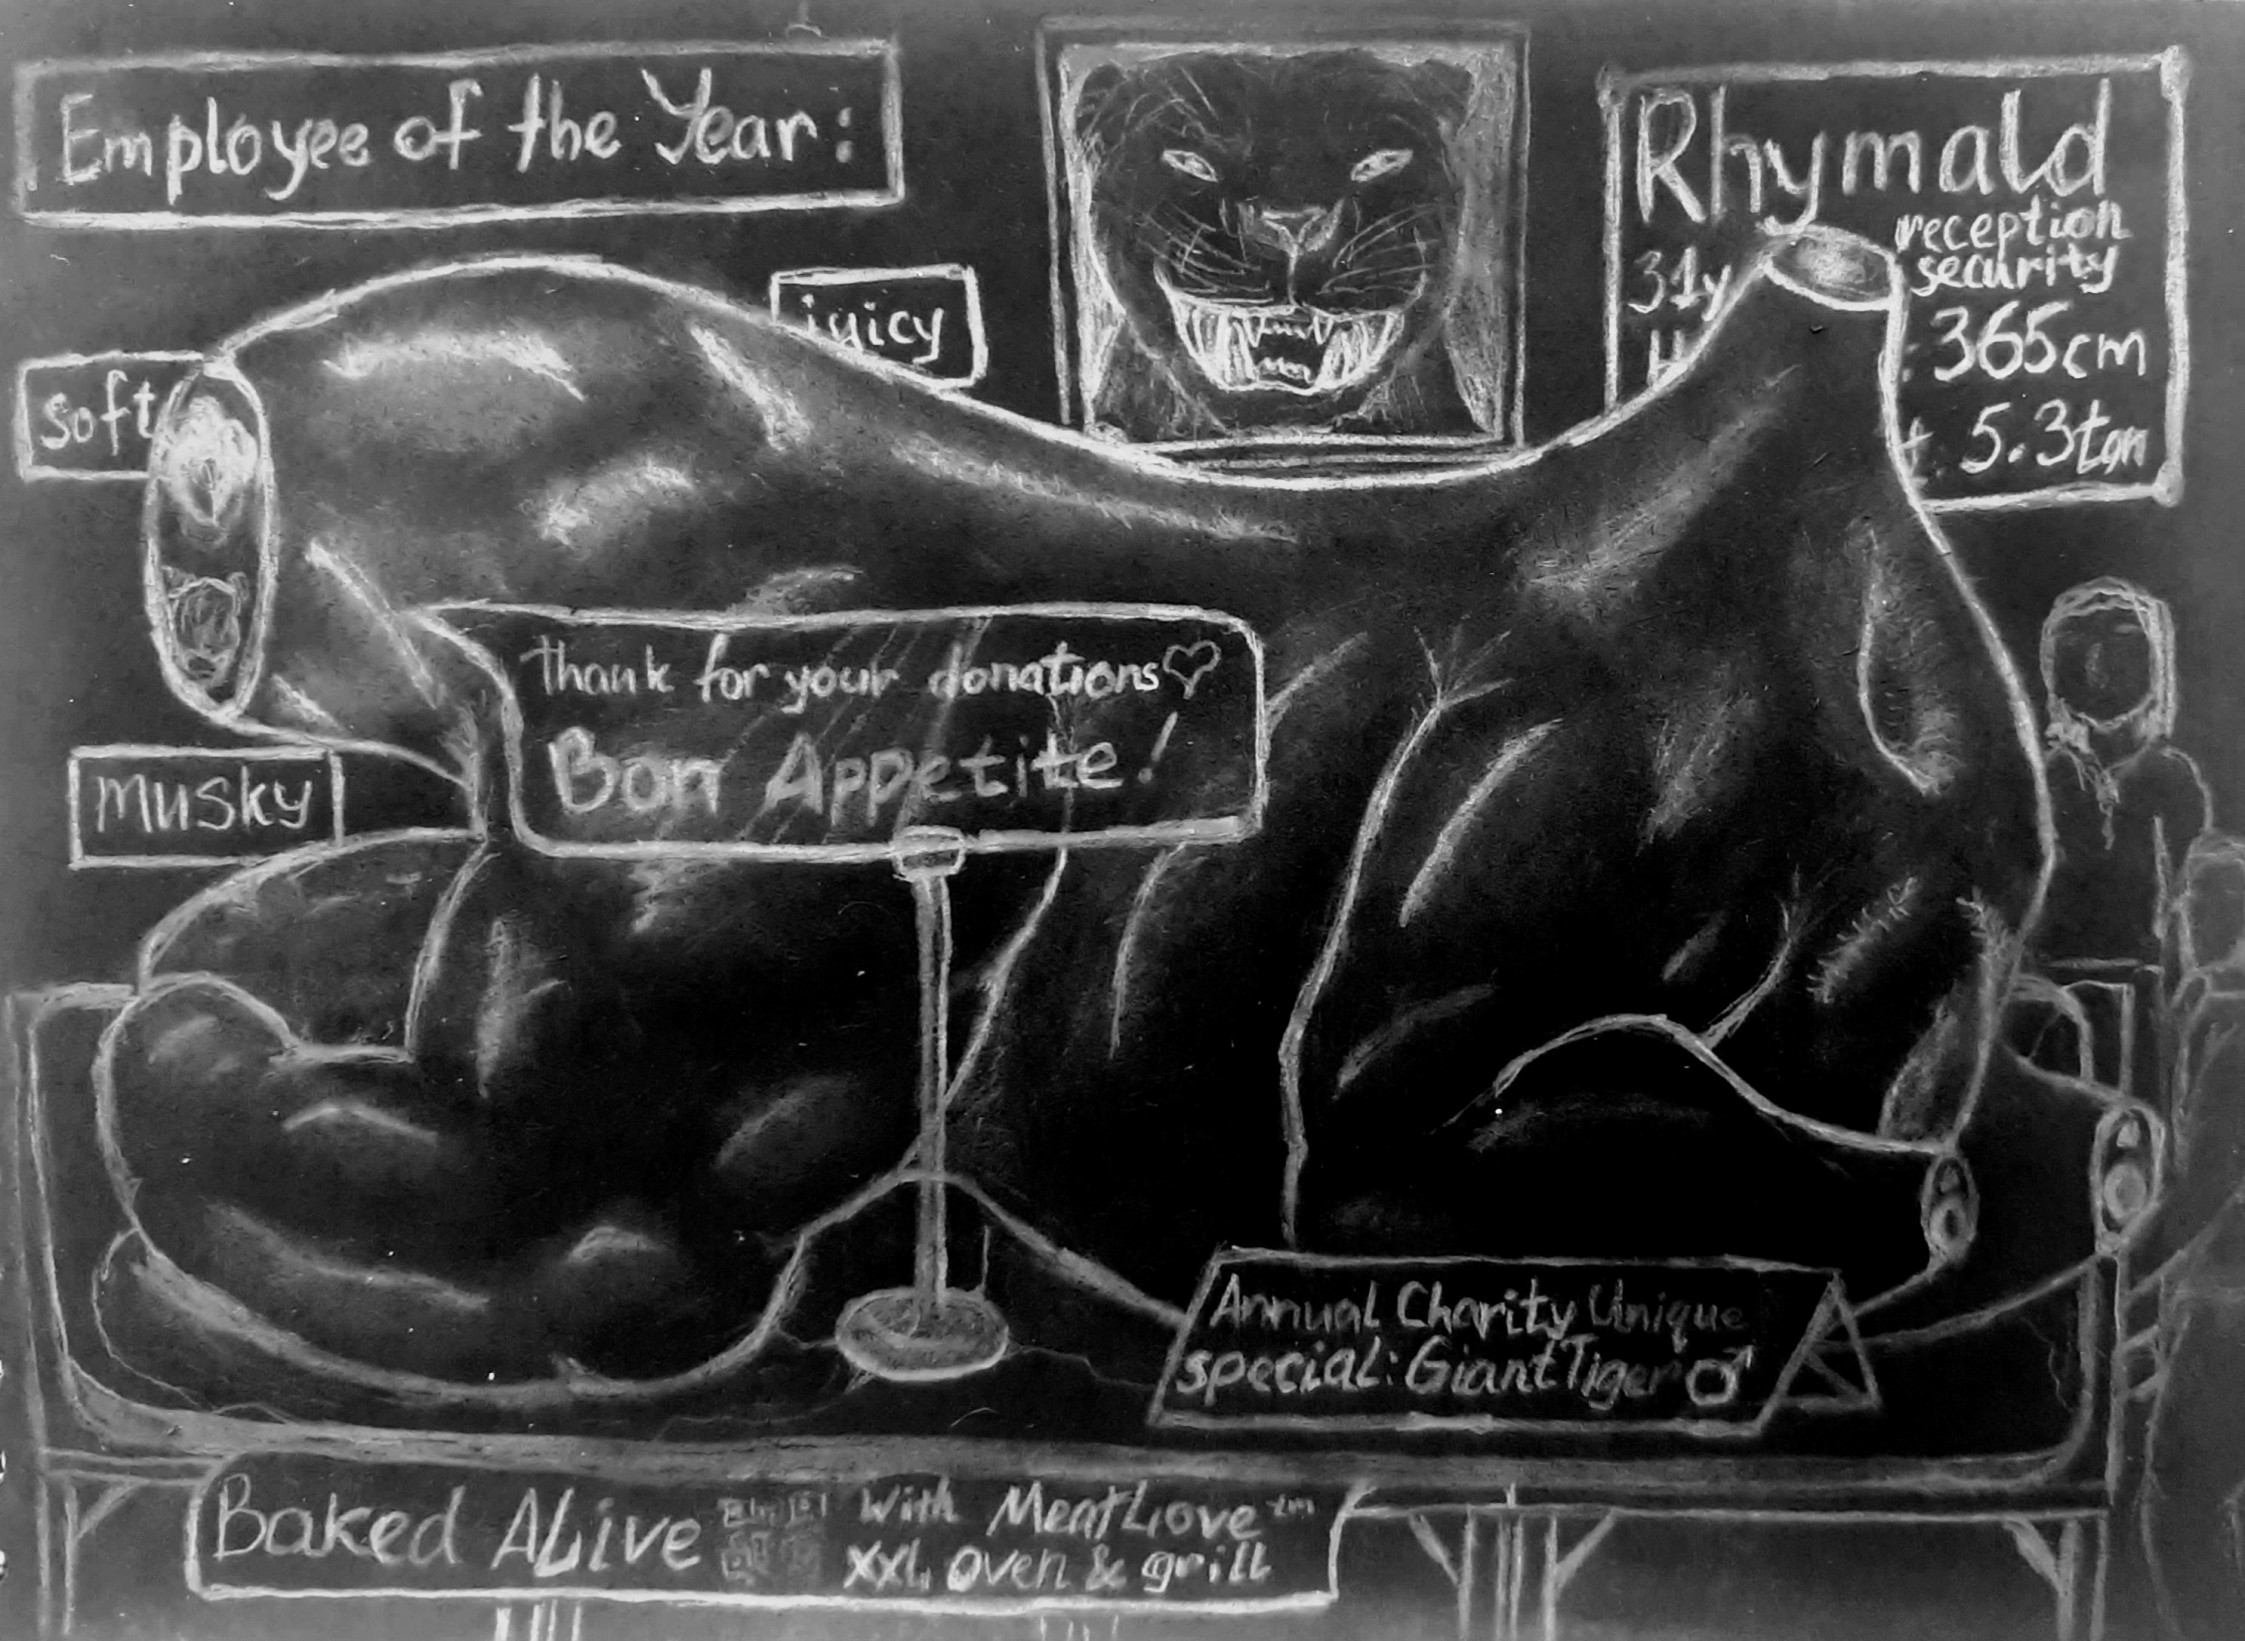 Employee of the Year:
Rhymald
reception
security
31y
H : 365cm
t 5.3ton
juicy
Soft
Musky
Thank for your donations♡
Bon Appetite!
Annual Charity Unique
special: Giant Tiger ♂
Baked ALive
With MeatLove™
XXL oven & grill